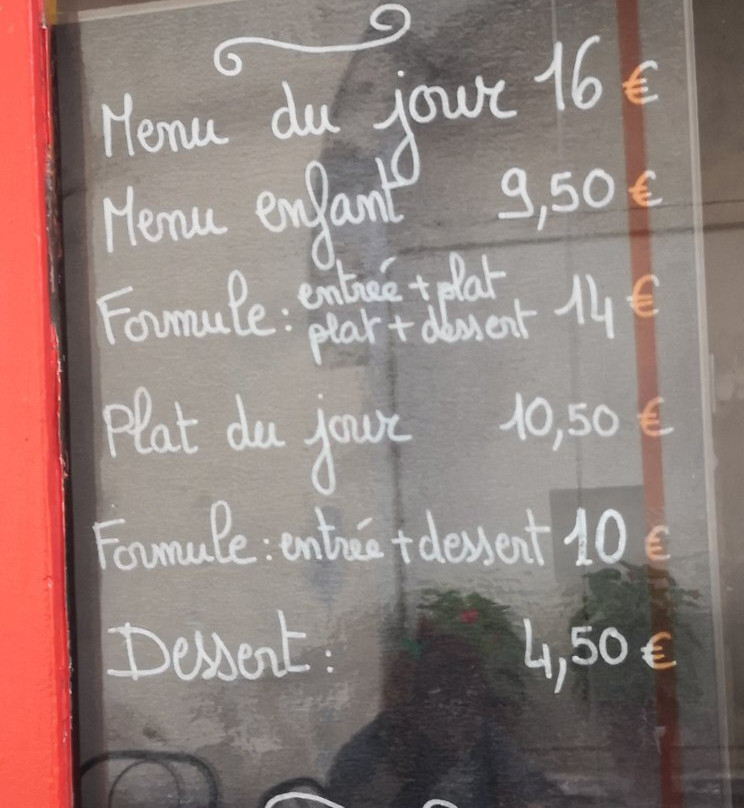 Menu du jour 16 €
Menu enfant 9,50 €
Formule: entrée + plat
plat + dessert 14 €
Plat du jour 10,50 €
Formule: entrée + dessert 10 €
Dessert: 4,50 €